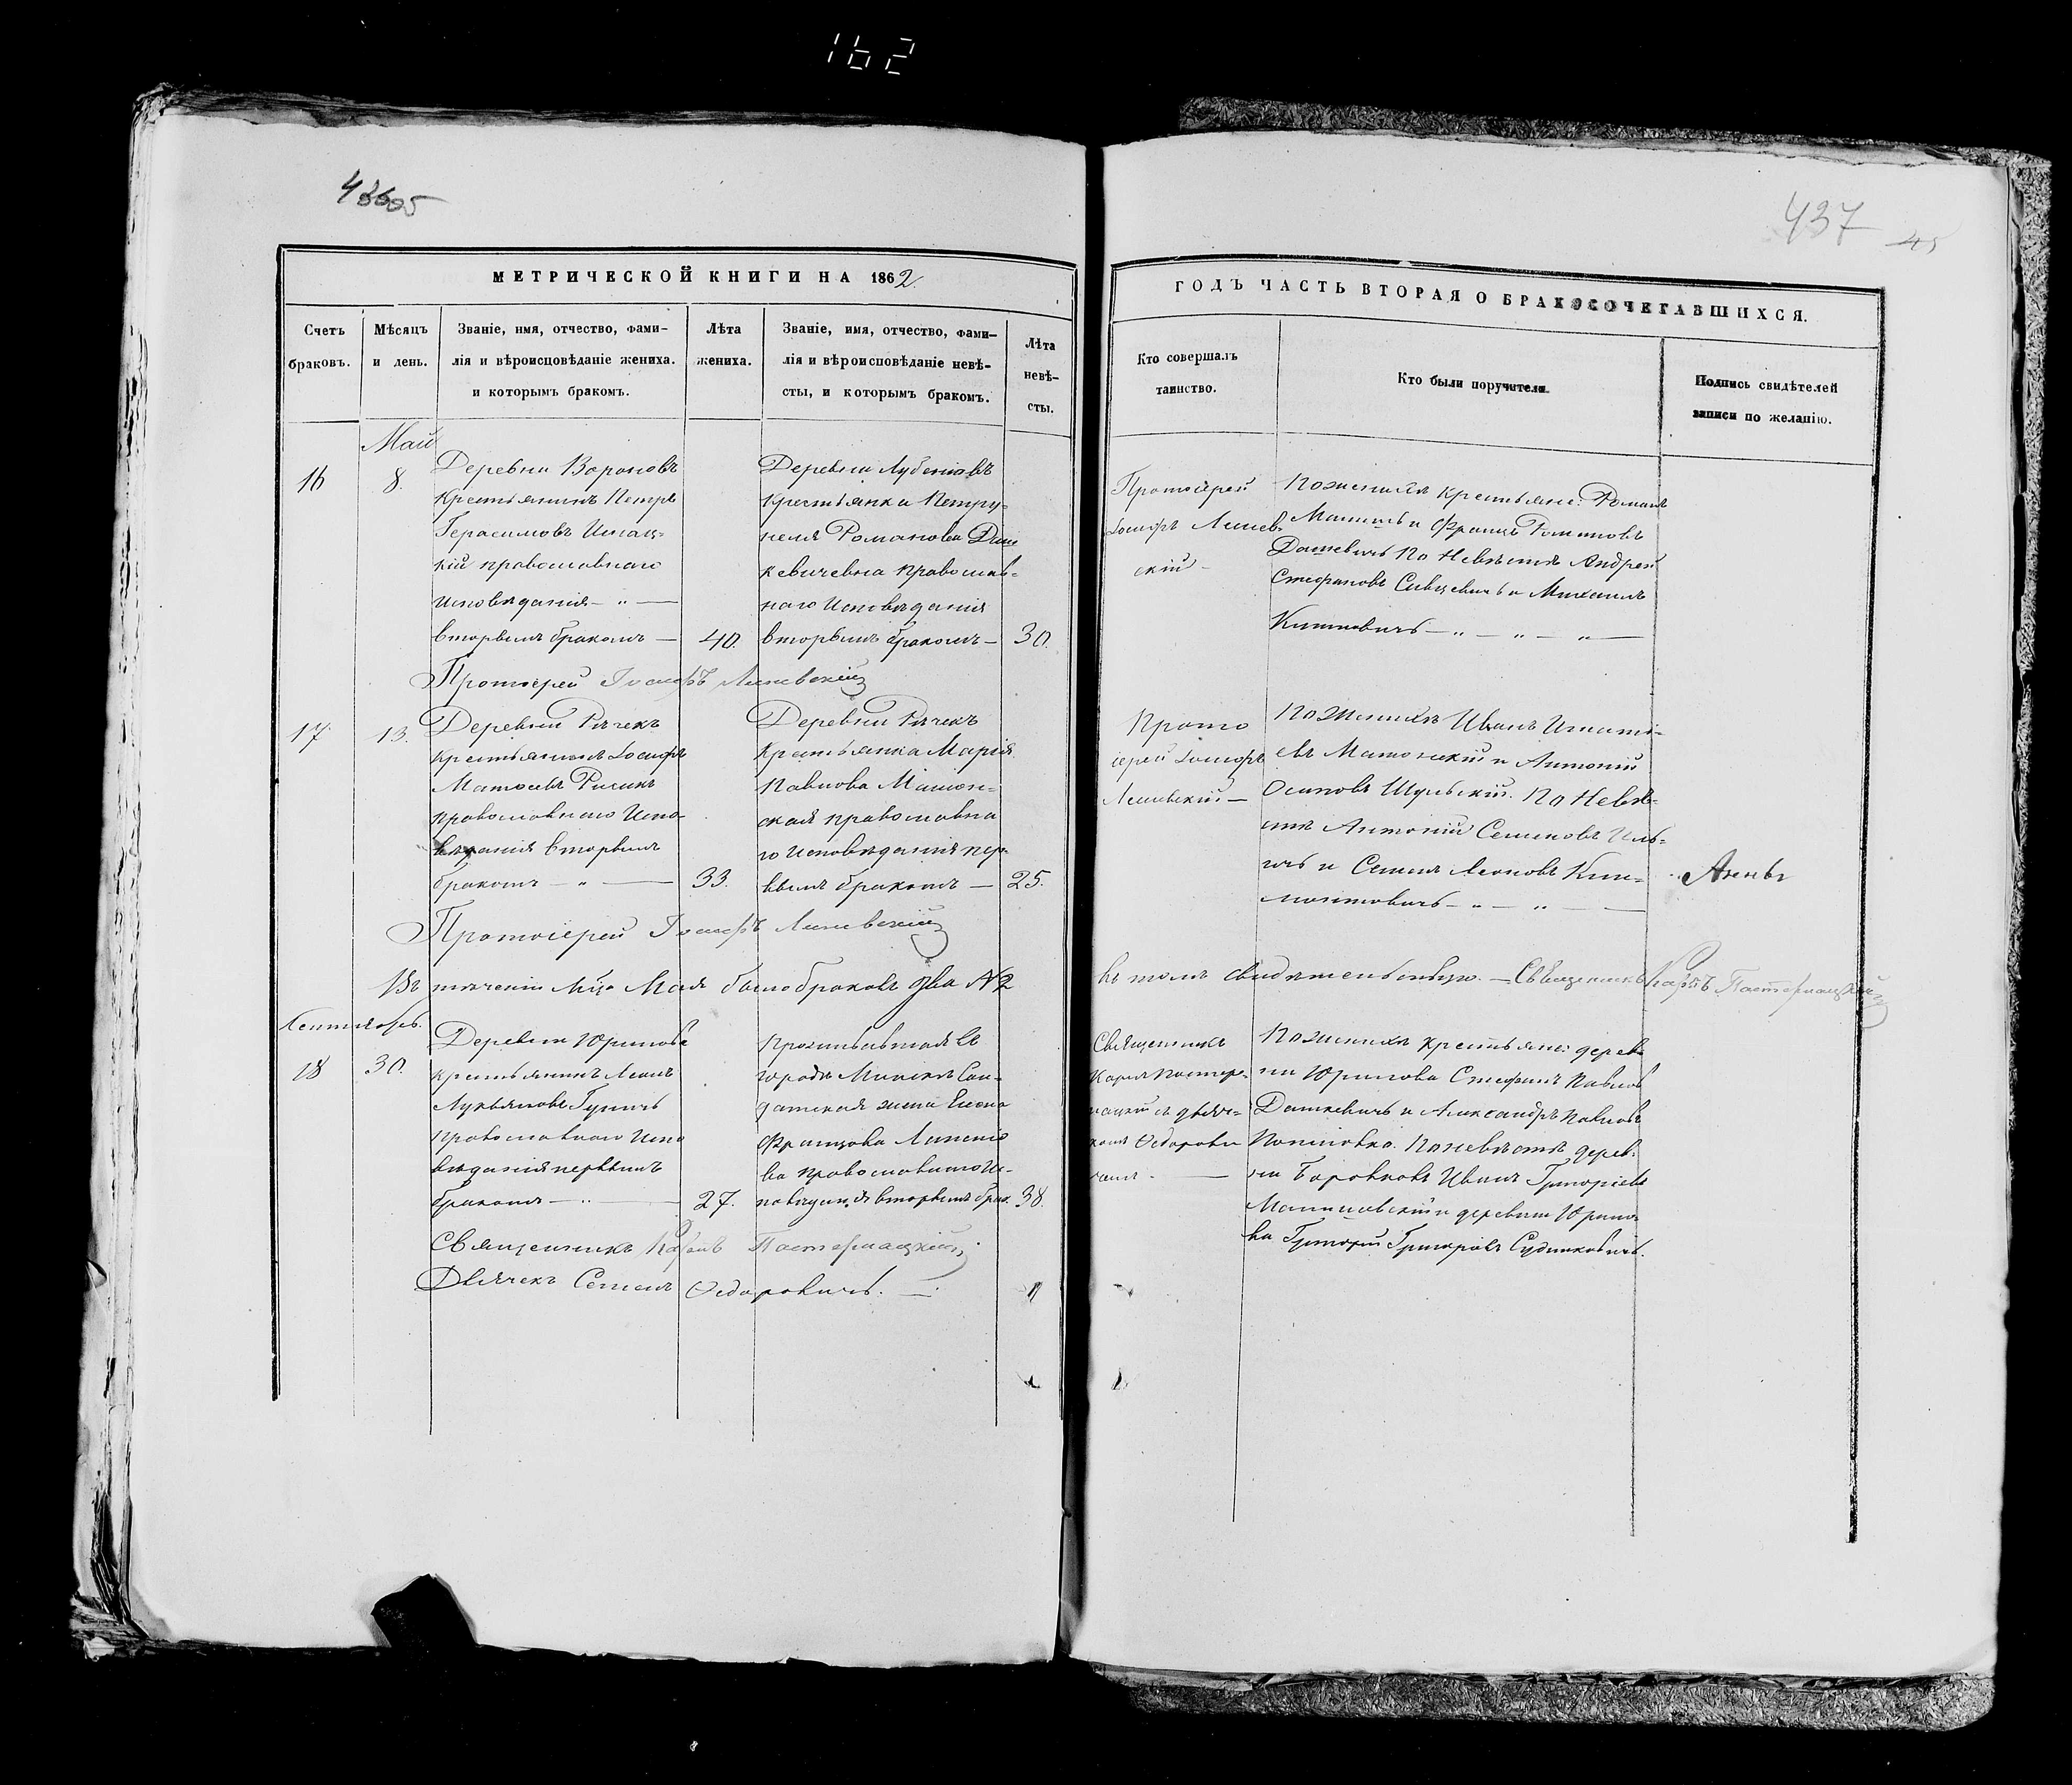 162
437
45
МЕТРИЧЕСКОЙ КНИГИ НА 1862
ГОДЪ ЧАСТЬ ВТОРАЯ О БРАКОСОЧЕТАВШИХСЯ.
Счетъ
браковъ.
Мѣсяцъ
и день.
Званіе, имя, отчество, фами-
лія и вѣроисповѣданіе жениха.
и которымъ бракомъ.
Лѣта
жениха.
Званіе, имя, отчество, фами-
лія и вѣроисповѣданіе невѣ-
сты, и которымъ бракомъ.
Лѣта
невѣ-
сты.
Кто совершалъ
таинство.
Кто были поручители
Подпись свидѣтелей
записи по желанію.
16
Май
8.
Деревни Вороновъ
Крестьянинъ Петръ
Герасимовъ
кій православнаго
Исповѣданія — „ —
вторымъ бракомъ —
40.
Деревни
Крестьянка Петру-
неля Романова Даш
кевичевна православ-
наго Исповѣданія
вторымъ бракомъ —
30.
Протоіерей
Іосифъ Линев-
скій —
По женихѣ крестьяне: Романъ
и Францъ
Дашкевичъ По Невѣстѣ Андрей
Стефановъ и Михаилъ
— „ — „ — „ —
Протоіерей Іосифъ Линевскій
17
13.
Деревни Рачекъ
крестьянинъ Іосифъ
Матѳеевъ
православнаго Испо
вѣданія вторымъ
бракомъ — „ —
33.
Деревни Рачекъ
Крестьянка Марія
Павлова
ская православна
го Исповѣданія пер-
вымъ бракомъ —
25.
Прото
іерей Іосифъ
Линевскій —
По Женихѣ Иванъ Игнаті-
евъ и Антоній
Осиповъ Шульскій. По Невѣ-
стѣ Антоній Семеновъ Иль-
ичъ и Семенъ Леоновъ Кли-
монтовичъ — „ — „ —
Протоіерей Іосифъ Линевскій
Въ теченіи М-ца Мая было браковъ два № 2
въ томъ свидѣтельствую. — Священникъ Карпъ Пастернацкій
Сентябрь.
18
30.
Деревни Юринова
крестьянинъ
Лукьяновъ
Православнаго Испо
вѣданія первымъ
бракомъ — „ —
27.
Проживавшая въ
городѣ Минскѣ Сол-
датская жена Елена
Францова
ва православнаго И-
повѣданія вторымъ брак.
38.
Священникъ
Карпъ Пастер-
нацкій съ дьяч-
комъ Ѳедорови
чемъ. —
По женихѣ крестьяне: дерев
ни Юринова Стефанъ Павловъ
Дашкевичъ и Александръ Павловъ
По невѣстѣ дерев-
ни Боровковъ Иванъ Григоріевъ
Малиновскій и деревни Юрино-
ва Григорій Григоровъ
Священникъ Карпъ Пастернацкій
Дьячекъ Семенъ Ѳедоровичъ. —